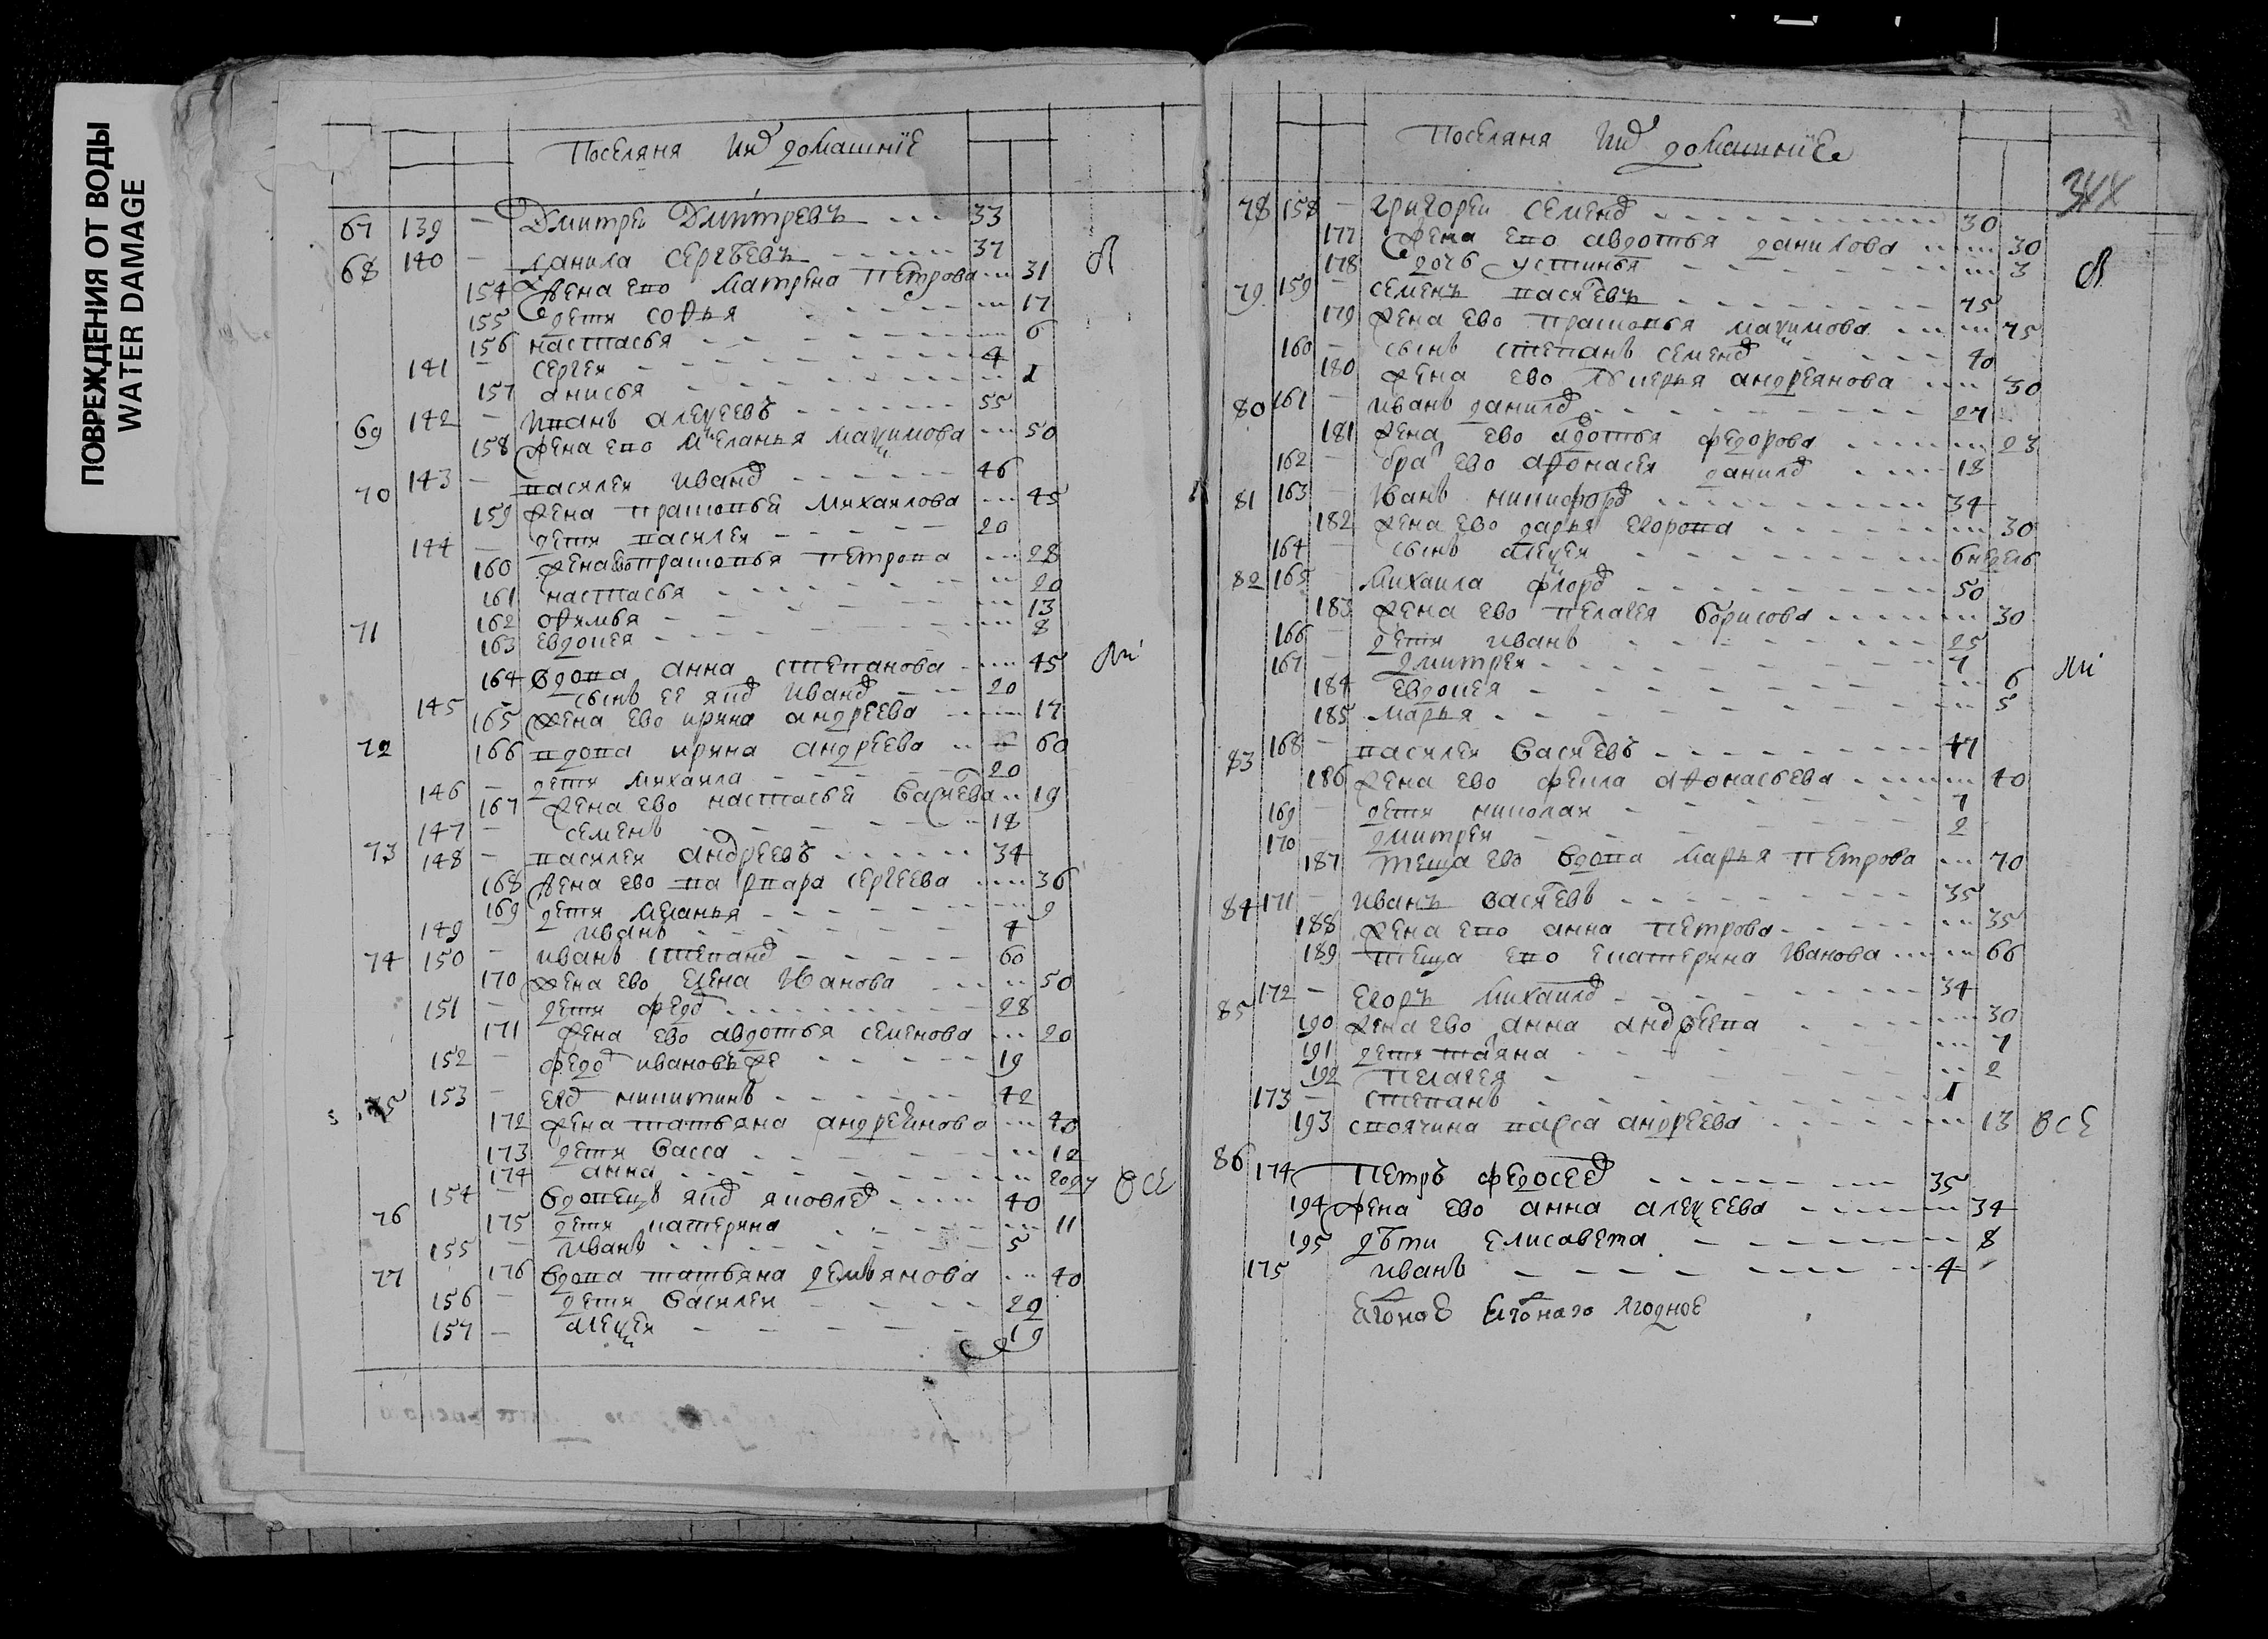 ПОВРЕЖДЕНИЯ ОТ ВОДЫ
WATER DAMAGE
Поселяня Их домашніе
67 139 — Дмитреи Дмитревъ 33
68 140 — Данила Сергѣевъ 37
154 Жена ево Матрена Петрова 31
155 дети Софья 17
156 настасья 6
141 — Сергеи 4
157 анисья 1
69 142 — Иванъ алексеевъ 55
158 жена ево Меланья Максимова 50
70 143 — василеи Иванов 46
159 жена прасковья Михаилова 45
144 — дети василеи 20
160 жена ево прасковья петрова 28
161 настасья 20
162 офимья 13
163 Евдокея 8
71 164 вдова анна степанова 45
145 — сынъ ее Иванов 20
165 жена ево ирина андреева 17
72 166 вдова ирина андреева 60
146 — дети михаила 20
167 жена ево настасья 19
147 — семенъ 18
73 148 — василеи андреевъ 34
168 жена ево варвара сергеева 36
169 дети меланья 9
149 — иванъ 4
74 150 — иванъ степанов 60
170 жена ево елена Иванова 50
151 — дети федо 28
171 жена ево авдотья семенова 20
152 — федо ивановъ же 19
75 153 — никитинъ 42
172 жена татьяна 40
173 дети васса 12
174 анна году
76 154 — вдовецъ яковлев 40
175 дети катерина 11
155 — иванъ 5
77 176 вдова татьяна демьянова 40
156 — дети василеи 29
157 — алексеи 19
все
Поселяня Их домашніе
344
78 158 — григореи семенов 30
177 жена ево авдотья данилова 30
178 дочь устинья 3
79 159 — семенъ васиевъ 75
179 жена ево прасковья максимова 75
160 — сынъ степанъ семенов 40
180 жена ево андреянова 30
80 161 — иванъ данилов 27
181 жена ево авдотья федорова 23
162 — бра ево афонасеи данилов 18
81 163 — Иванъ никифоров 34
182 жена ево дарья егорова 30
164 — сынъ алексеи 6 недель
82 165 — михаила флоров 50
183 жена ево пелагея борисова 30
166 — дети иванъ 25
167 — дмитреи 7
184 евдокея 6
185 марья 5
83 168 — василеи васиевъ 47
186 жена ево фекла афонасьева 40
169 — дети николаи 7
170 — дмитреи 2
187 теща ево вдова марья петрова 70
84 171 — иванъ васиевъ 35
188 жена ево анна петрова 35
189 теща ево екатерина Иванова 66
85 172 — егоръ михаилов 34
190 жена ево анна андреева 30
191 дети таяна 7
192 пелагея 2
173 — степанъ 1
193 своячина васса андреева 13
все
86 174 петръ федосеев 35
194 жена ево анна алексеева 34
195 дѣти елисавета 8
175 иванъ 4
ягодное